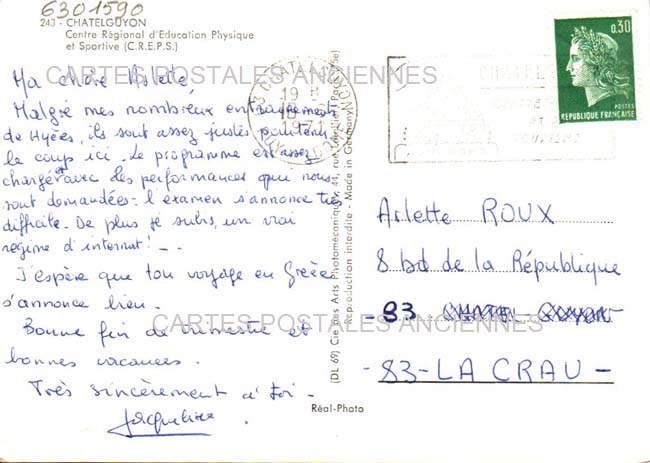 6301590
243 - CHATELGUYON
Centre Régional d'Education Physique
et Sportive (C.R.E.P.S.)
CARTES POSTALES ANCIENNES
Ma chère Arlette,
Malgré mes nombreux entrainements
de Hyères, ils sont assez justes pour tenir
le coup ici. Le programme est assez
chargé et avec des performances qui nous
sont demandées : l'examen s'annonce très
difficile. De plus je subis un vrai
régime d'internat ! - -
J'espère que ton voyage en Grèce
s'annonce bien.
CARTES POSTALES ANCIENNES
Bonne fin de trimestre et
bonnes vacances.
Très sincèrement à toi -
Jacqueline.
(DL 69) Cie des Arts Photomécaniques, 44, rue
Reproduction interdite - Made in Germany
Réal-Photo
19
1971
CHATEL
0,30
POSTES
REPUBLIQUE FRANÇAISE
Arlette ROUX
8 bd de la République
- 83
83 - LA CRAU -